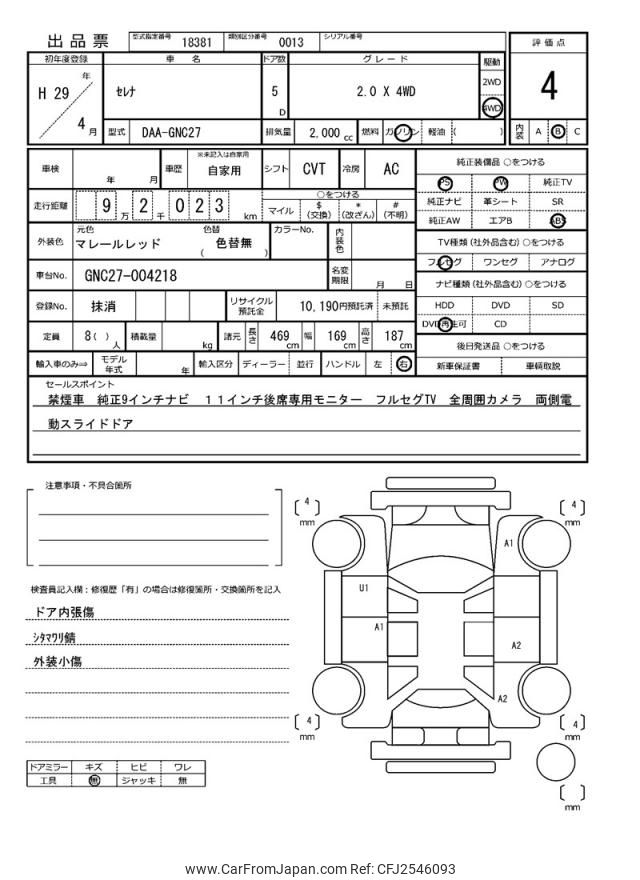 出品票 型式指定番号 18381 類別区分番号 0013 シリアル番号
評価点
4
内装 A B C
初年度登録 車名 ドア数 グレード 駆動
H 29 年 4 月 セレナ 5 D 2.0 X 4WD 2WD 4WD
型式 DAA-GNC27 排気量 2,000 cc 燃料 ガソリン 軽油 ( )
車検 年 月 車歴 ※未記入は自家用 自家用 シフト CVT 冷房 AC
走行距離 9 万 2 千 0 2 3 km
○をつける
マイル $ (交換) * (改ざん) # (不明)
外装色 元色 マレールレッド 色替 ( 色替無 ) カラーNo. 内装色
車台No. GNC27-004218 名変期限 月 日
登録No. 抹消 リサイクル預託金 10,190円預託済 未預託
定員 8 ( ) 人 積載量 kg 諸元 長さ 469 cm 幅 169 cm 高さ 187 cm
輸入車のみ⇒ モデル年式 年 輸入区分 ディーラー 並行 ハンドル 左 右
純正装備品 ○をつける
PS PW 純正TV
純正ナビ 革シート SR
純正AW エアB ABS
TV種類 (社外品含む) ○をつける
フルセグ ワンセグ アナログ
ナビ種類 (社外品含む) ○をつける
HDD DVD SD
DVD再生可 CD
後日発送品 ○をつける
新車保証書 車輌取説
セールスポイント
禁煙車 純正9インチナビ 11インチ後席専用モニター フルセグTV 全周囲カメラ 両側電
動スライドドア
注意事項・不具合箇所
検査員記入欄:修復歴「有」の場合は修復箇所・交換箇所を記入
ドア内張傷
シタマワリ錆
外装小傷
ドアミラー キズ ヒビ ワレ
工具 無 ジャッキ 無
4 mm
4 mm
A1
U1
A1
A2
A2
4 mm
4 mm
mm
www.CarFromJapan.com Ref: CFJ2546093